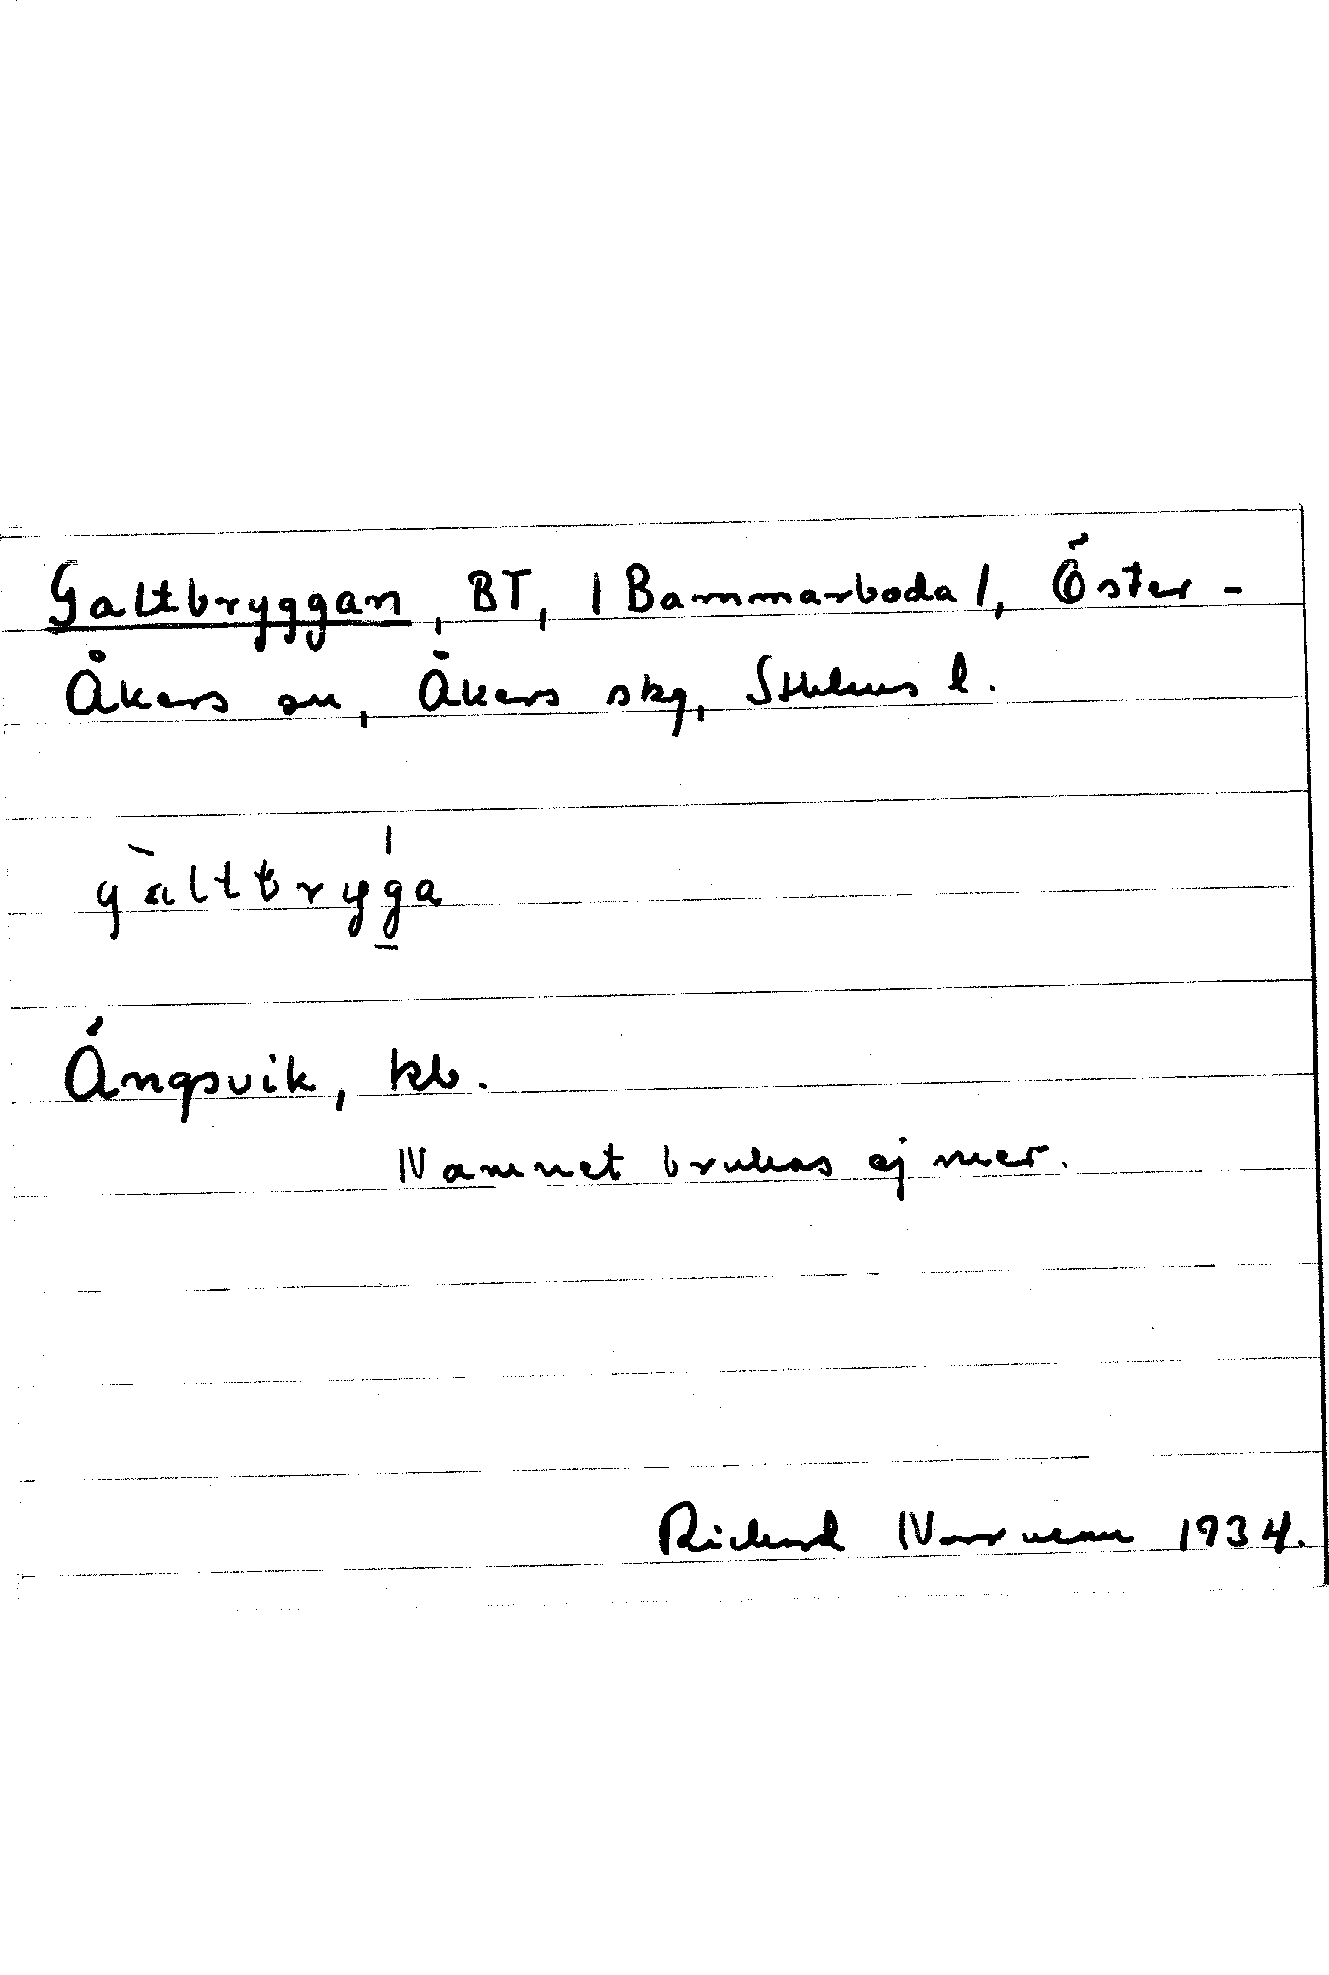 Galtbryggan, BT, / Bammarboda /, Öster-
Åkers sn, Åkers skg, Sthlms l.
gàltbrýg̱a
Ängsvik, kb.
Namnet brukas ej mer.
Rickard Norrman 1934.